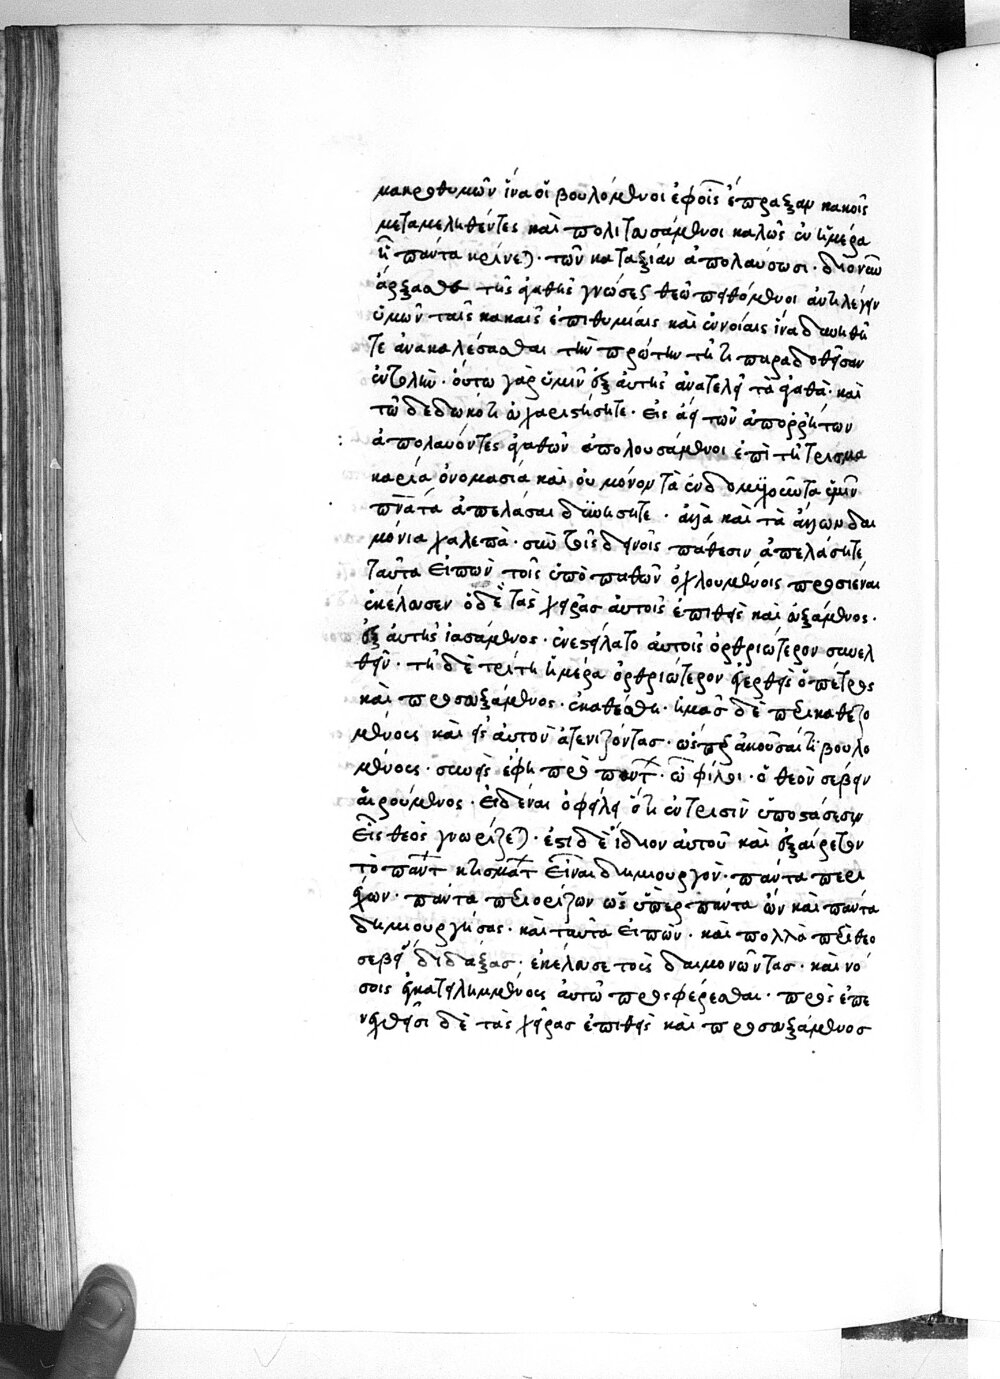 μακροθυμῶν ἵνα οἱ βουλόμενοι ἐφ οἷς ἔπραξαν κακοῖς
μεταμεληθέντες καὶ πολιτευσάμενοι καλῶς ἐν ἡμέρα
ἧ πάντα κρίνεται· τῶν καταξίαν ἀπολαύσωσι· διὸ νῦν
ἄρξασθε τῆς ἀγαθῆς γνώσεως θεῶ πειθόμενοι ἀντιλέγειν
ὑμῶν ταῖς κακαῖς ἐπιθυμίαις καὶ ἐννοίαις ἵνα δυνηθῆ
τε ἀνακαλέσασθαι τὴν πρώτην τῆ παραδοθεῖσαν
ἐντολὴν· οὕτω γὰρ ὑμῖν ἐξ αὐτῆς ἀνατελεῖ τὰ ἀγαθὰ· καὶ
τῶ δεδωκότι εὐχαριστήσητε· εἰς ἀεὶ τῶν ἀπορρήτων
ἀπολαύοντες ἀγαθῶν ἀπολουσάμενοι ἐπὶ τῆ τρισμα
καρία ὀνομασία καὶ οὐ μόνον τὰ ἐνδομυχοῦντα ὑμῖν
πνατα ἀπελάσαι δυνήσητε· ἀλλὰ καὶ τὰ ἄλλων δαι
μόνια χαλεπὰ· σὺν τοῖς δεινοῖς πάθεσιν ἀπελάσητε
ταῦτα εἰπὼν τοῖς ὑπὸ παθῶν ὀχλουμένοις προσιέναι
ἐκέλευσεν ὁ δὲ τὰς χεῖρας αὐτοῖς ἐπιθεὶς καὶ εὐξάμενος·
ἐξ αὐτῆς ἰασάμενος· ἐνεστείλατο αὐτοῖς ὀρθριώτερον συνελ
θεῖν· τῆ δὲ τρίτη ἡμέρα ὀρθριώτερον ἐγερθεὶς ὁ πέτρος
καὶ προσευξάμενος· ἐκαθέσθη· ἡμᾶς δὲ περικαθεζο
μένους καὶ εἰς αὐτὸν ἀτενίζοντας· ὥσπερ ἀκοῦσαί τι βουλο
μένους· συνεὶς ἔφη πρὸ πάντων· ὦ φίλοι· ὁ θεὸν σέβειν
αἱρούμενος· εἰδέναι ὀφείλει ὅτι ἐν τρισὶν ὑποστάσεσιν
εἷς θεὸς γνωρίζεται· ἔστι δὲ ἴδιον αὐτοῦ καὶ ἐξαίρετον
τὸ πάντων κτισμάτων εἶναι δημιουργὸν· πάντα περι
έχων· πάντα περιορίζων ὡς ὑπερ πάντα ὢν καὶ πάντα
δημιουργήσας· καὶ ταῦτα εἰπὼν· καὶ πολλὰ περὶ θεο
σεβεί διδάξας· ἐκέλευσε τοὺς δαιμονῶντας· καὶ νό
σοις ἐγκατειλημμένους αὐτῶ προσφέρεσθαι· προς ἐπε
νεχθεῖσι δὲ τὰς χεῖρας ἐπιθεὶς καὶ προσευξάμενος